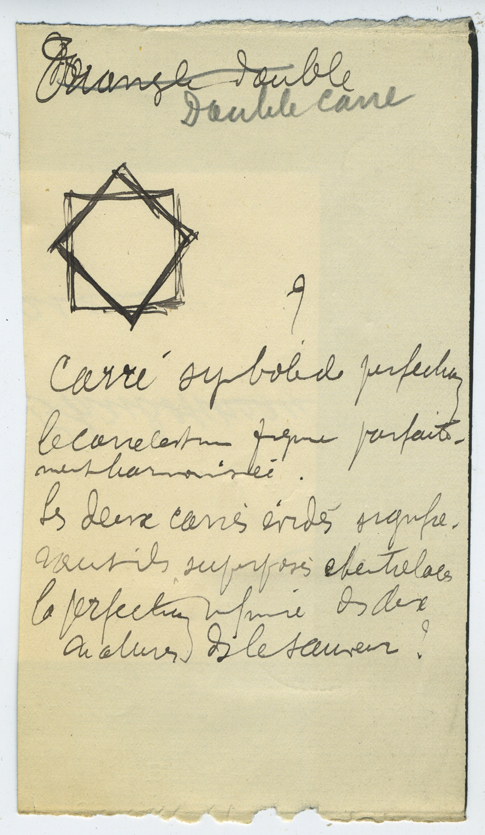 Triangle double
Double carré
?
Carré symbole de perfection
le carré est une figure parfaite-
ment harmonisée.
Les deux carrés évidés signifie-
raient ils superposés et entrelacés
la perfection infinie des deux
natures ds le Sauveur ?